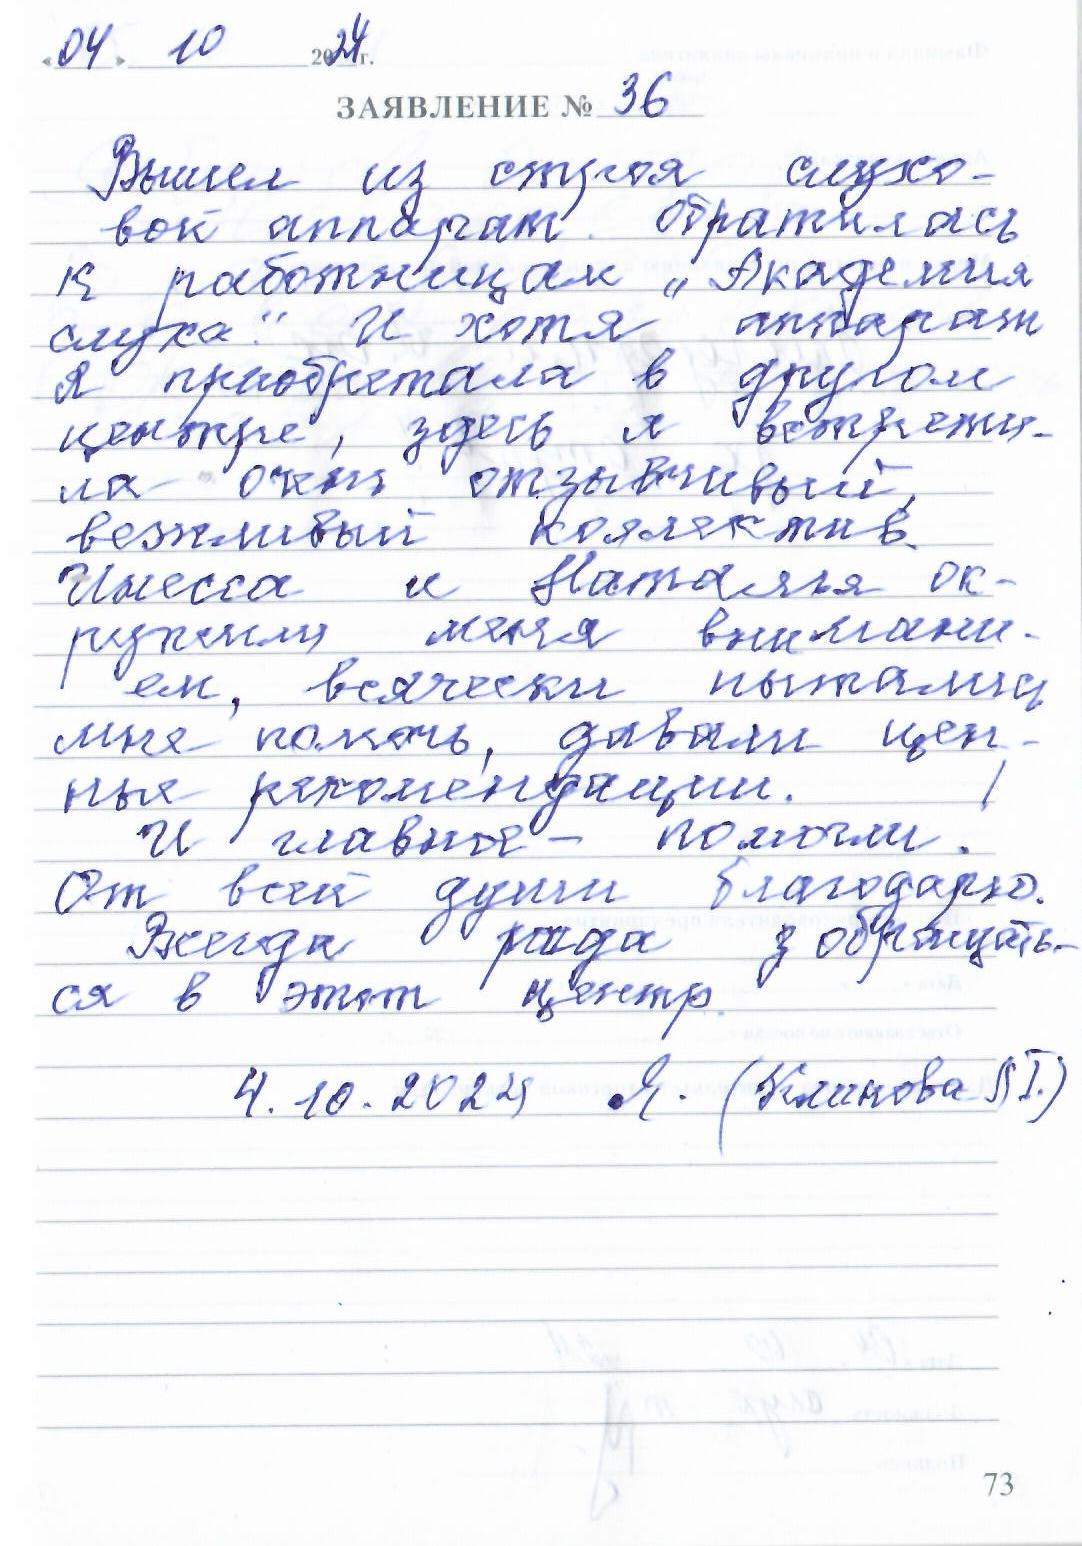 «04» 10 2024 г.
ЗАЯВЛЕНИЕ № 36
Вышел из строя слухо-
вой аппарат. Обратилась
к работницам „Академия
слуха". И хотя аппарат
я приобретала в другом
центре, здесь я встрети-
ла очень отзывчивый,
вежливый коллектив.
Инесса и Наталья ок-
ружили меня внимани-
ем, всячески пытались
мне помочь, давали цен-
ные рекомендации.
И главное – помогли.
От всей души благодарю.
Всегда рада обращать-
ся в этот центр.
4.10.2024 Я. (Климова
73